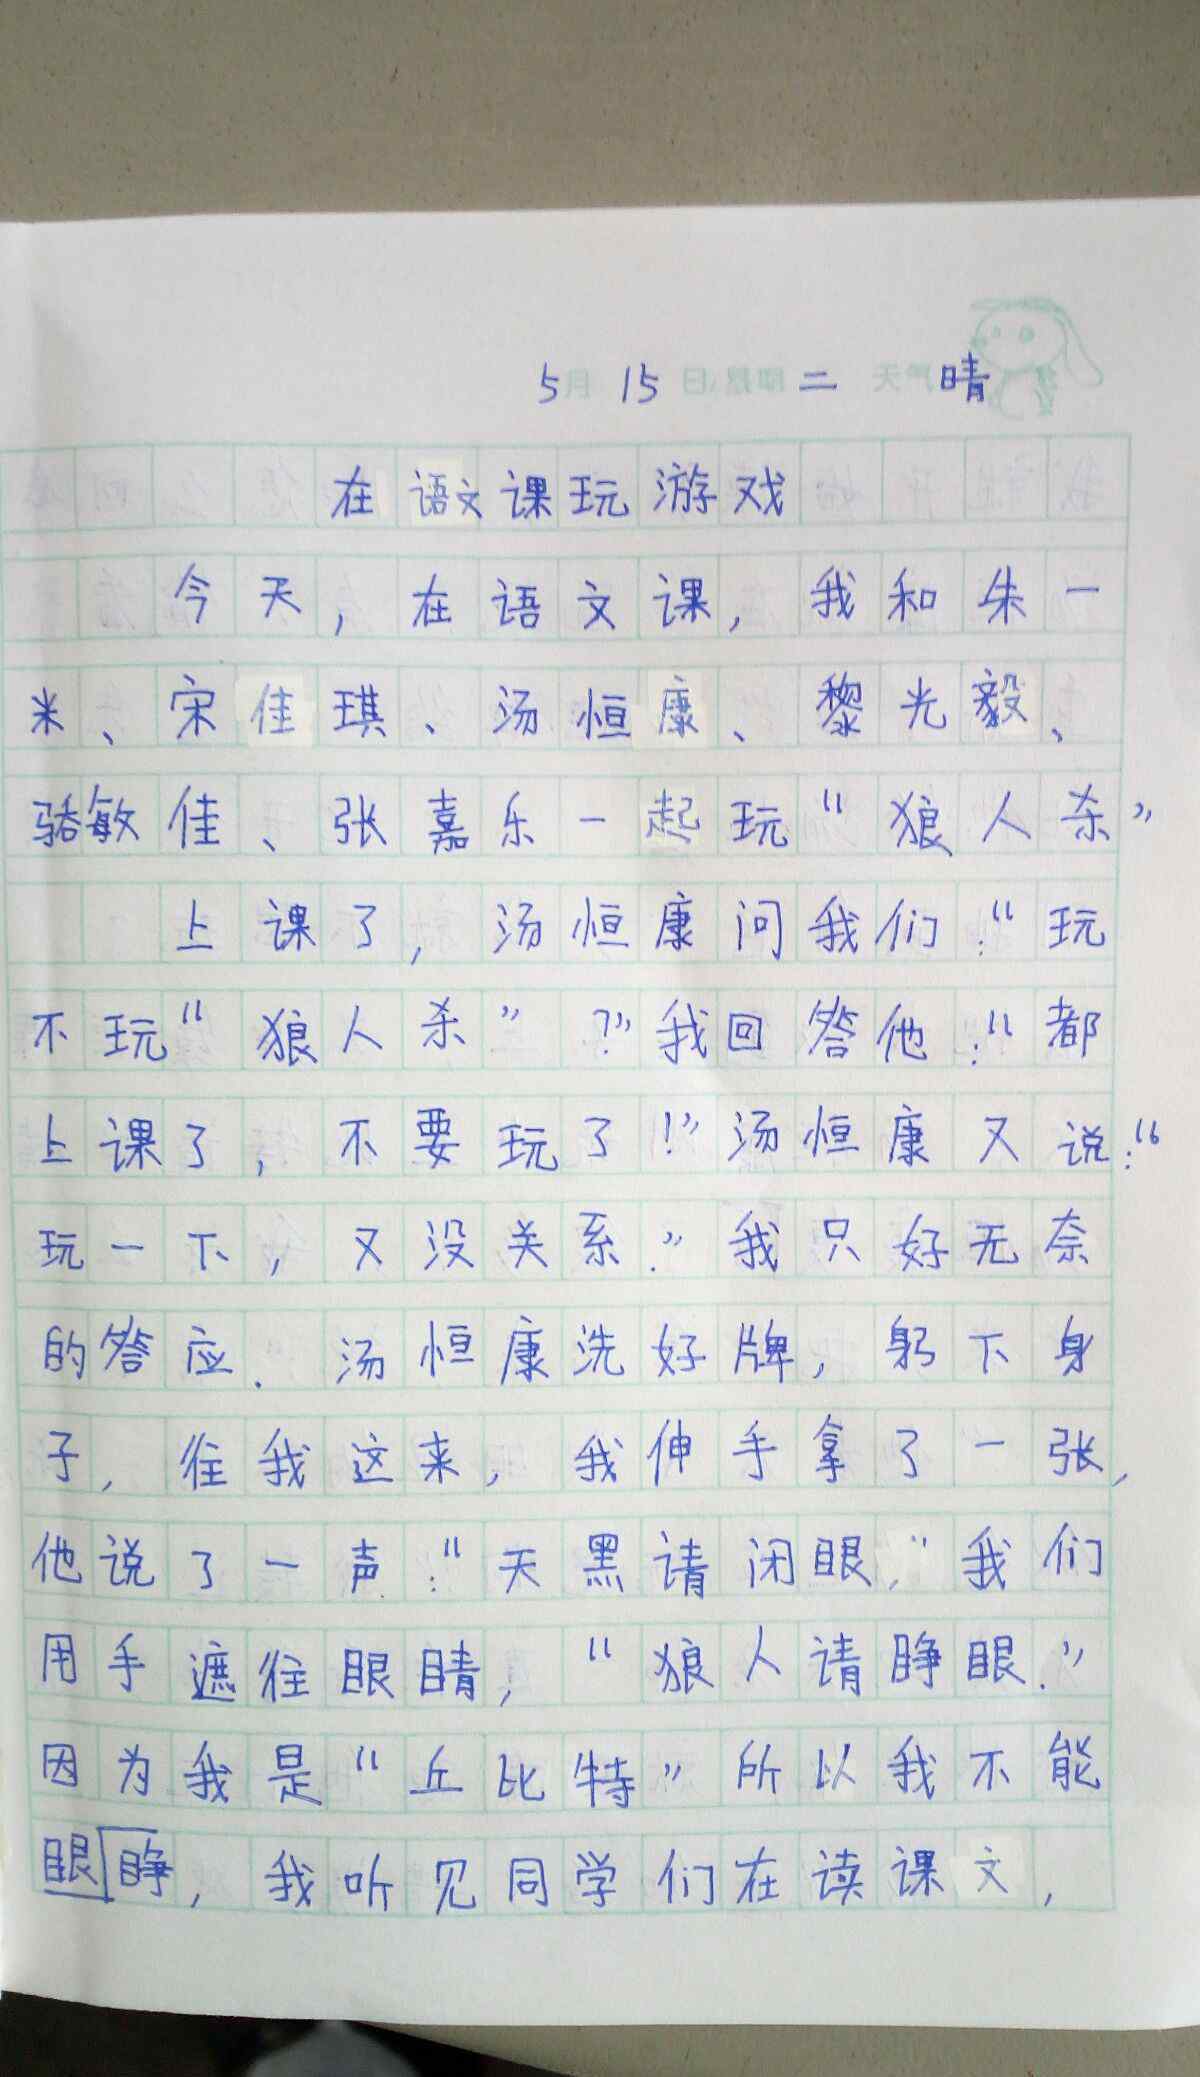 5月 15 日 星期 二 天气 晴
在语文课玩游戏
今天，在语文课，我和朱一
米、宋佳琪、汤恒康、黎光毅、
骆敏佳、张嘉乐一起玩“狼人杀”
上课了，汤恒康问我们：“玩
不玩“狼人杀”？”我回答他：“都
上课了，不要玩了！”汤恒康又说：“
玩一下，又没关系.”我只好无奈
的答应.汤恒康洗好牌，躬下身
子，往我这来，我伸手拿了一张，
他说了一声：“天黑请闭眼，”我们
用手遮住眼睛，“狼人请睁眼.”
因为我是“丘比特”所以我不能
眼睁，我听见同学们在读课文，